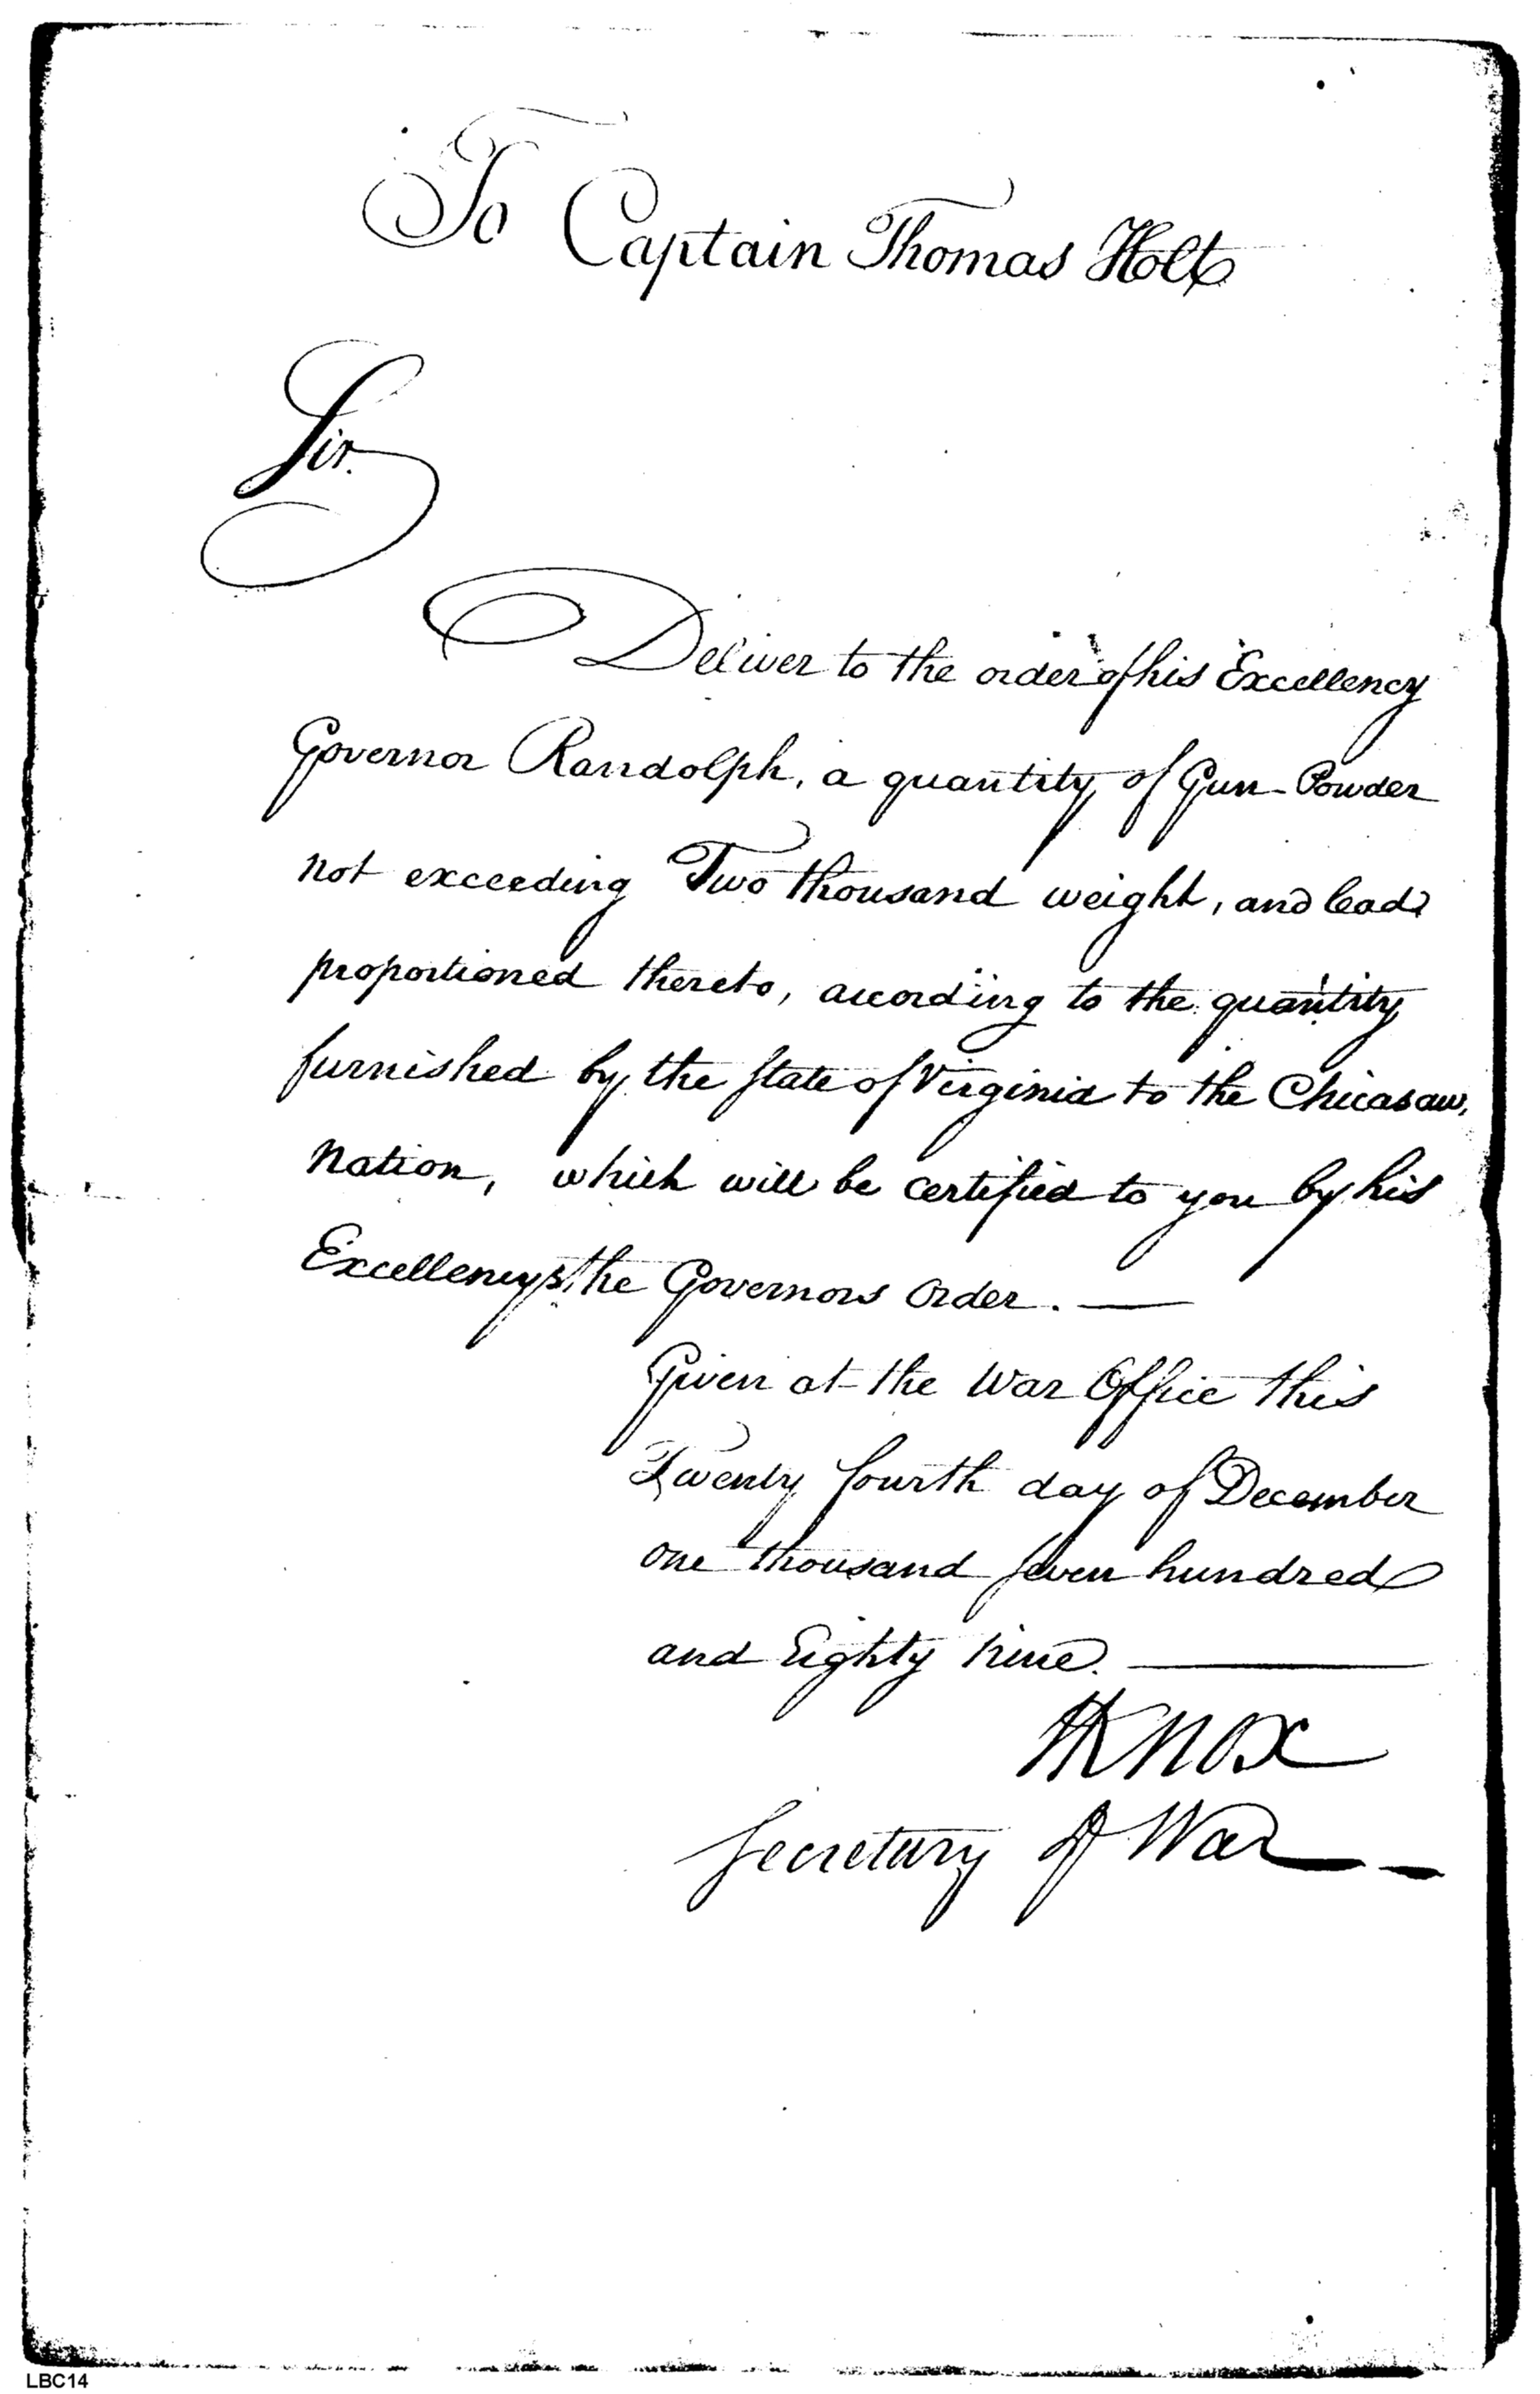 To Captain Thomas Holt
Sir.
Deliver to the order of his Excellency
Governor Randolph, a quantity of Gun-Powder
not exceeding Two thousand weight, and lead
proportioned thereto, according to the quantity
furnished by the State of Virginia to the Chicasaw,
Nation, which will be certified to you by his
Excellencys, the Governors Order. —
Given at the War Office this
Twenty fourth day of December
one thousand seven hundred
and Eighty nine. —
HKnox
Secretary of War — –
LBC14